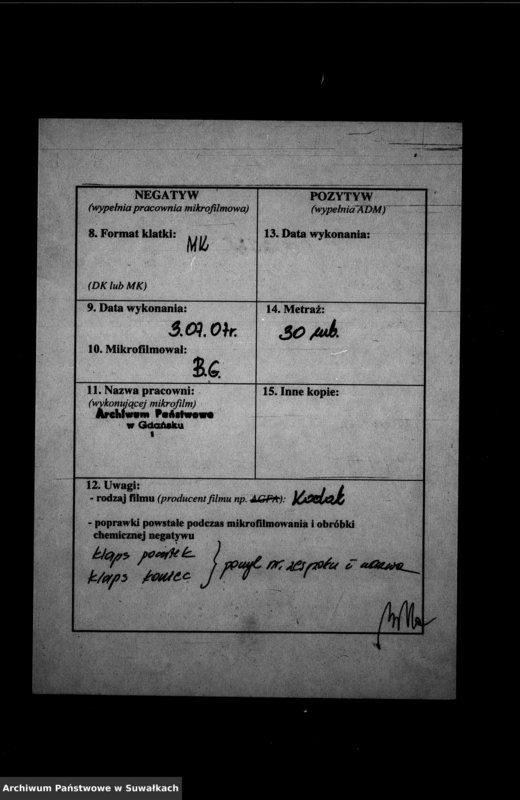 NEGATYW
(wypełnia pracownia mikrofilmowa)
8. Format klatki:
MK
(DK lub MK)
9. Data wykonania:
3.07.07r.
10. Mikrofilmował:
B.G.
11. Nazwa pracowni:
(wykonującej mikrofilm)
Archiwum Państwowe
w Gdańsku
1
POZYTYW
(wypełnia ADM)
13. Data wykonania:
14. Metraż:
30 mb.
15. Inne kopie:
12. Uwagi:
- rodzaj filmu (producent filmu np. AGFA): Kodak
- poprawki powstałe podczas mikrofilmowania i obróbki
chemicznej negatywu
klaps początek
klaps koniec } pomył. nr. zespołu i nazwa
Archiwum Państwowe w Suwałkach